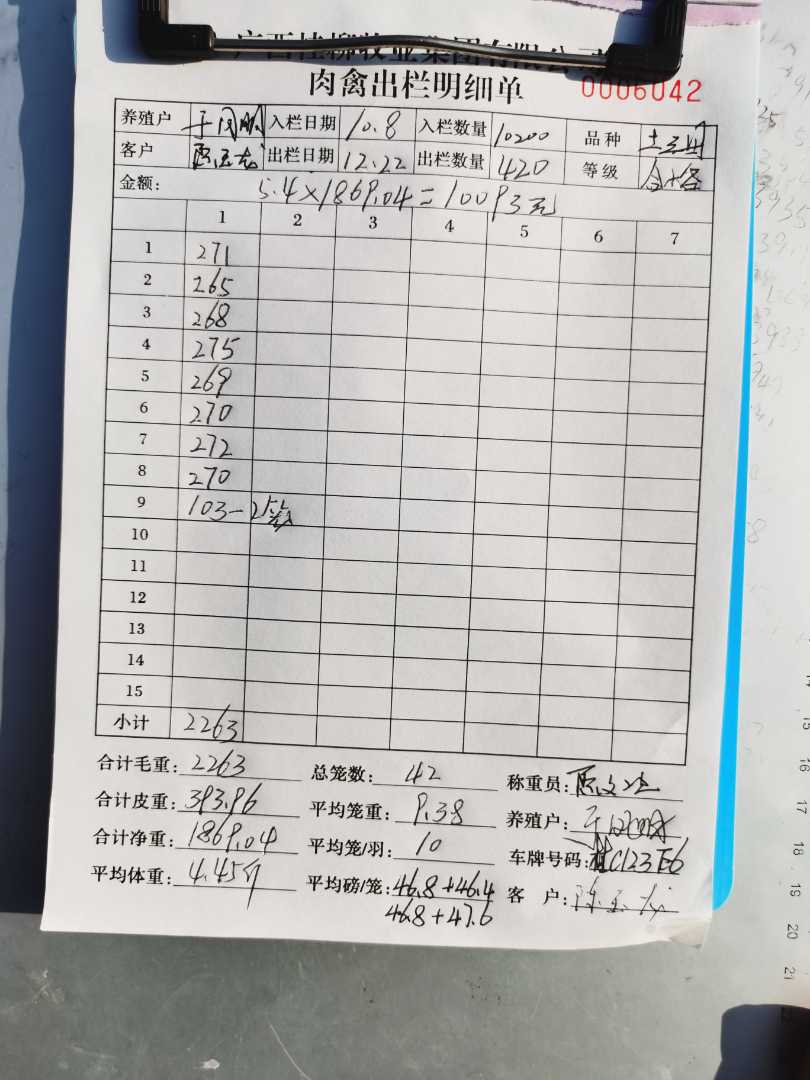 广西桂柳牧业集团有限公司
肉禽出栏明细单 0006042
养殖户 入栏日期 10.8 入栏数量 10200 品种
客户 出栏日期 12.22 出栏数量 420 等级 合格
金额: 5.4×1869.04=10093元
1 2 3 4 5 6 7
1 271
2 265
3 268
4 275
5 269
6 270
7 272
8 270
9 103-2笼
10
11
12
13
14
15
小计 2263
合计毛重: 2263 总笼数: 42 称重员:
合计皮重: 393.96 平均笼重: 9.38 养殖户:
合计净重: 1869.04 平均笼/羽: 10 车牌号码: 桂C123E6
平均体重: 4.45斤 平均磅/笼: 46.8+46.4 客 户:
46.8+47.6
15
16
17
18
19
20
21